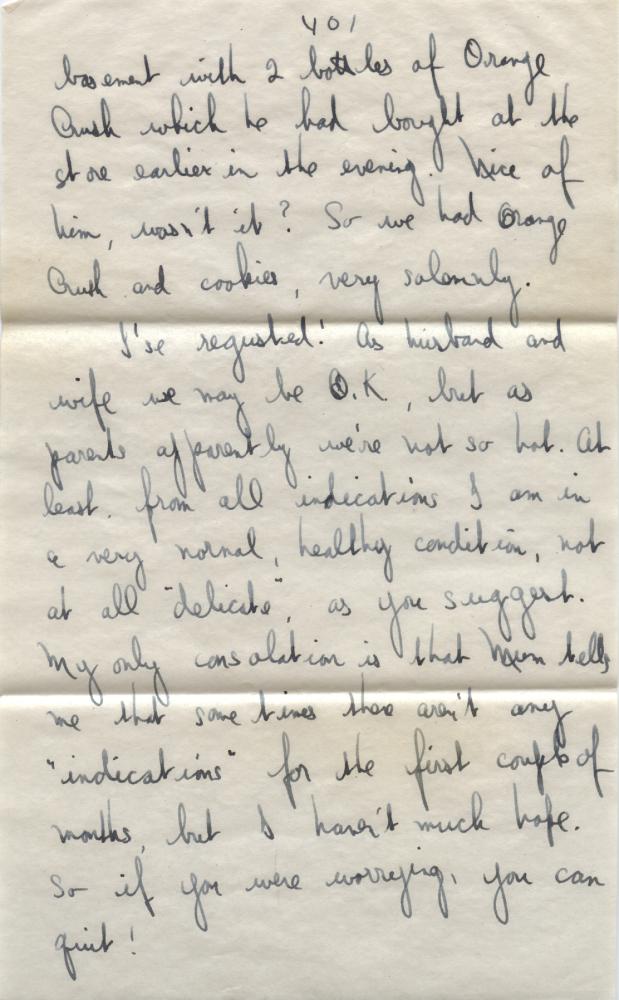 401
basement with 2 bottles of Orange
Crush which he had bought at the
store earlier in the evening. Nice of
him, wasn't it? So we had Orange
Crush and cookies, very solemnly.
I'se regusted! As husband and
wife we may be O.K., but as
parents apparently we're not so hot. At
least, from all indications I am in
a very normal, healthy condition, not
at all "delicate", as you suggest.
My only consolation is that Mum tells
me that some times there aren't any
"indications" for the first couple of
months, but I haven't much hope.
So if you were worrying, you can
quit!